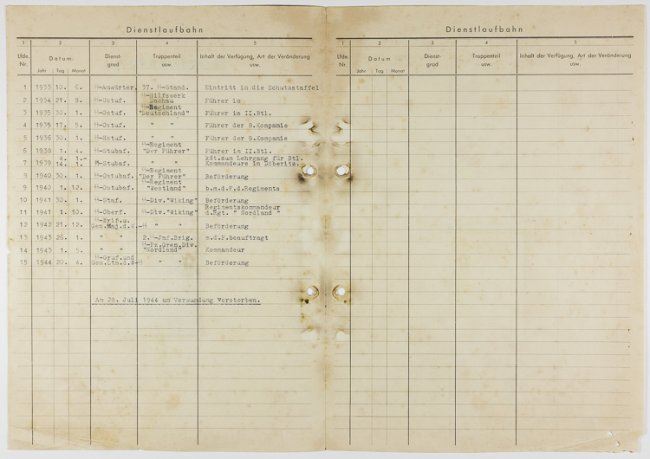 Dienstlaufbahn
1 2 3 4 5
Lfde. Nr. Datum: Dienst- grad Truppenteil usw. Inhalt der Verfügung, Art der Veränderung usw.
Jahr Tag Monat
1 1933 10. ᛋᛋ-Anwärter, 37. ᛋᛋ-Stand. Eintritt in die Schutzstaffel
ᛋᛋ-Hilfswerk
2 1934 21. 3. ᛋᛋ-Ostuf. Dachau Führer im
ᛋᛋ-Regiment
3 1935 30. 1. ᛋᛋ-Ostuf. "Deutschland" Führer im II.Btl.
4 1935 17. 5. ᛋᛋ-Ostuf. " " Führer der 8.Kompanie
5 1936 30. 1. ᛋᛋ-Hstuf. " " Führer der 9.Kompanie
ᛋᛋ-Regiment
6 1938 1. 4. ᛋᛋ-Stubaf. "Der Führer" Führer im II.Btl.
Kdt.zum Lehrgang für Btl.
7 1939 14. 1. ᛋᛋ-Stubaf. " " Kommandeure in Döberitz.
ᛋᛋ-Regiment
8 1940 30. 1. ᛋᛋ-Ostubaf. "Der Führer" Beförderung
ᛋᛋ-Regiment
9 1940 1. 12. ᛋᛋ-Ostubaf. "Westland" b.m.d.F.d.Regiments
10 1941 30. 1. ᛋᛋ-Staf. ᛋᛋ-Div."Wiking" Beförderung
Regimentskommandeur
11 1941 1. 10. ᛋᛋ-Oberf. ᛋᛋ-Div."Wiking" d.Rgt. " Nordland "
ᛋᛋ-Brif.u.
12 1942 21. 12. Gen.Maj.d.W.-ᛋᛋ " " Beförderung
13 1943 26. 1. " " m.d.F.beauftragt
"Nordland"
14 1943 1. 5. " " Kommandeur
ᛋᛋ-Gruf.und
15 1944 20. 4. Gen.Ltn.d.W-ᛋᛋ " " Beförderung
Am 28. Juli 1944 an Verwundung Verstorben.
Dienstlaufbahn
1 2 3 4 5
Lfde. Nr. Datum Dienst- grad Truppenteil usw. Inhalt der Verfügung, Art der Veränderung usw.
Jahr Tag Monat